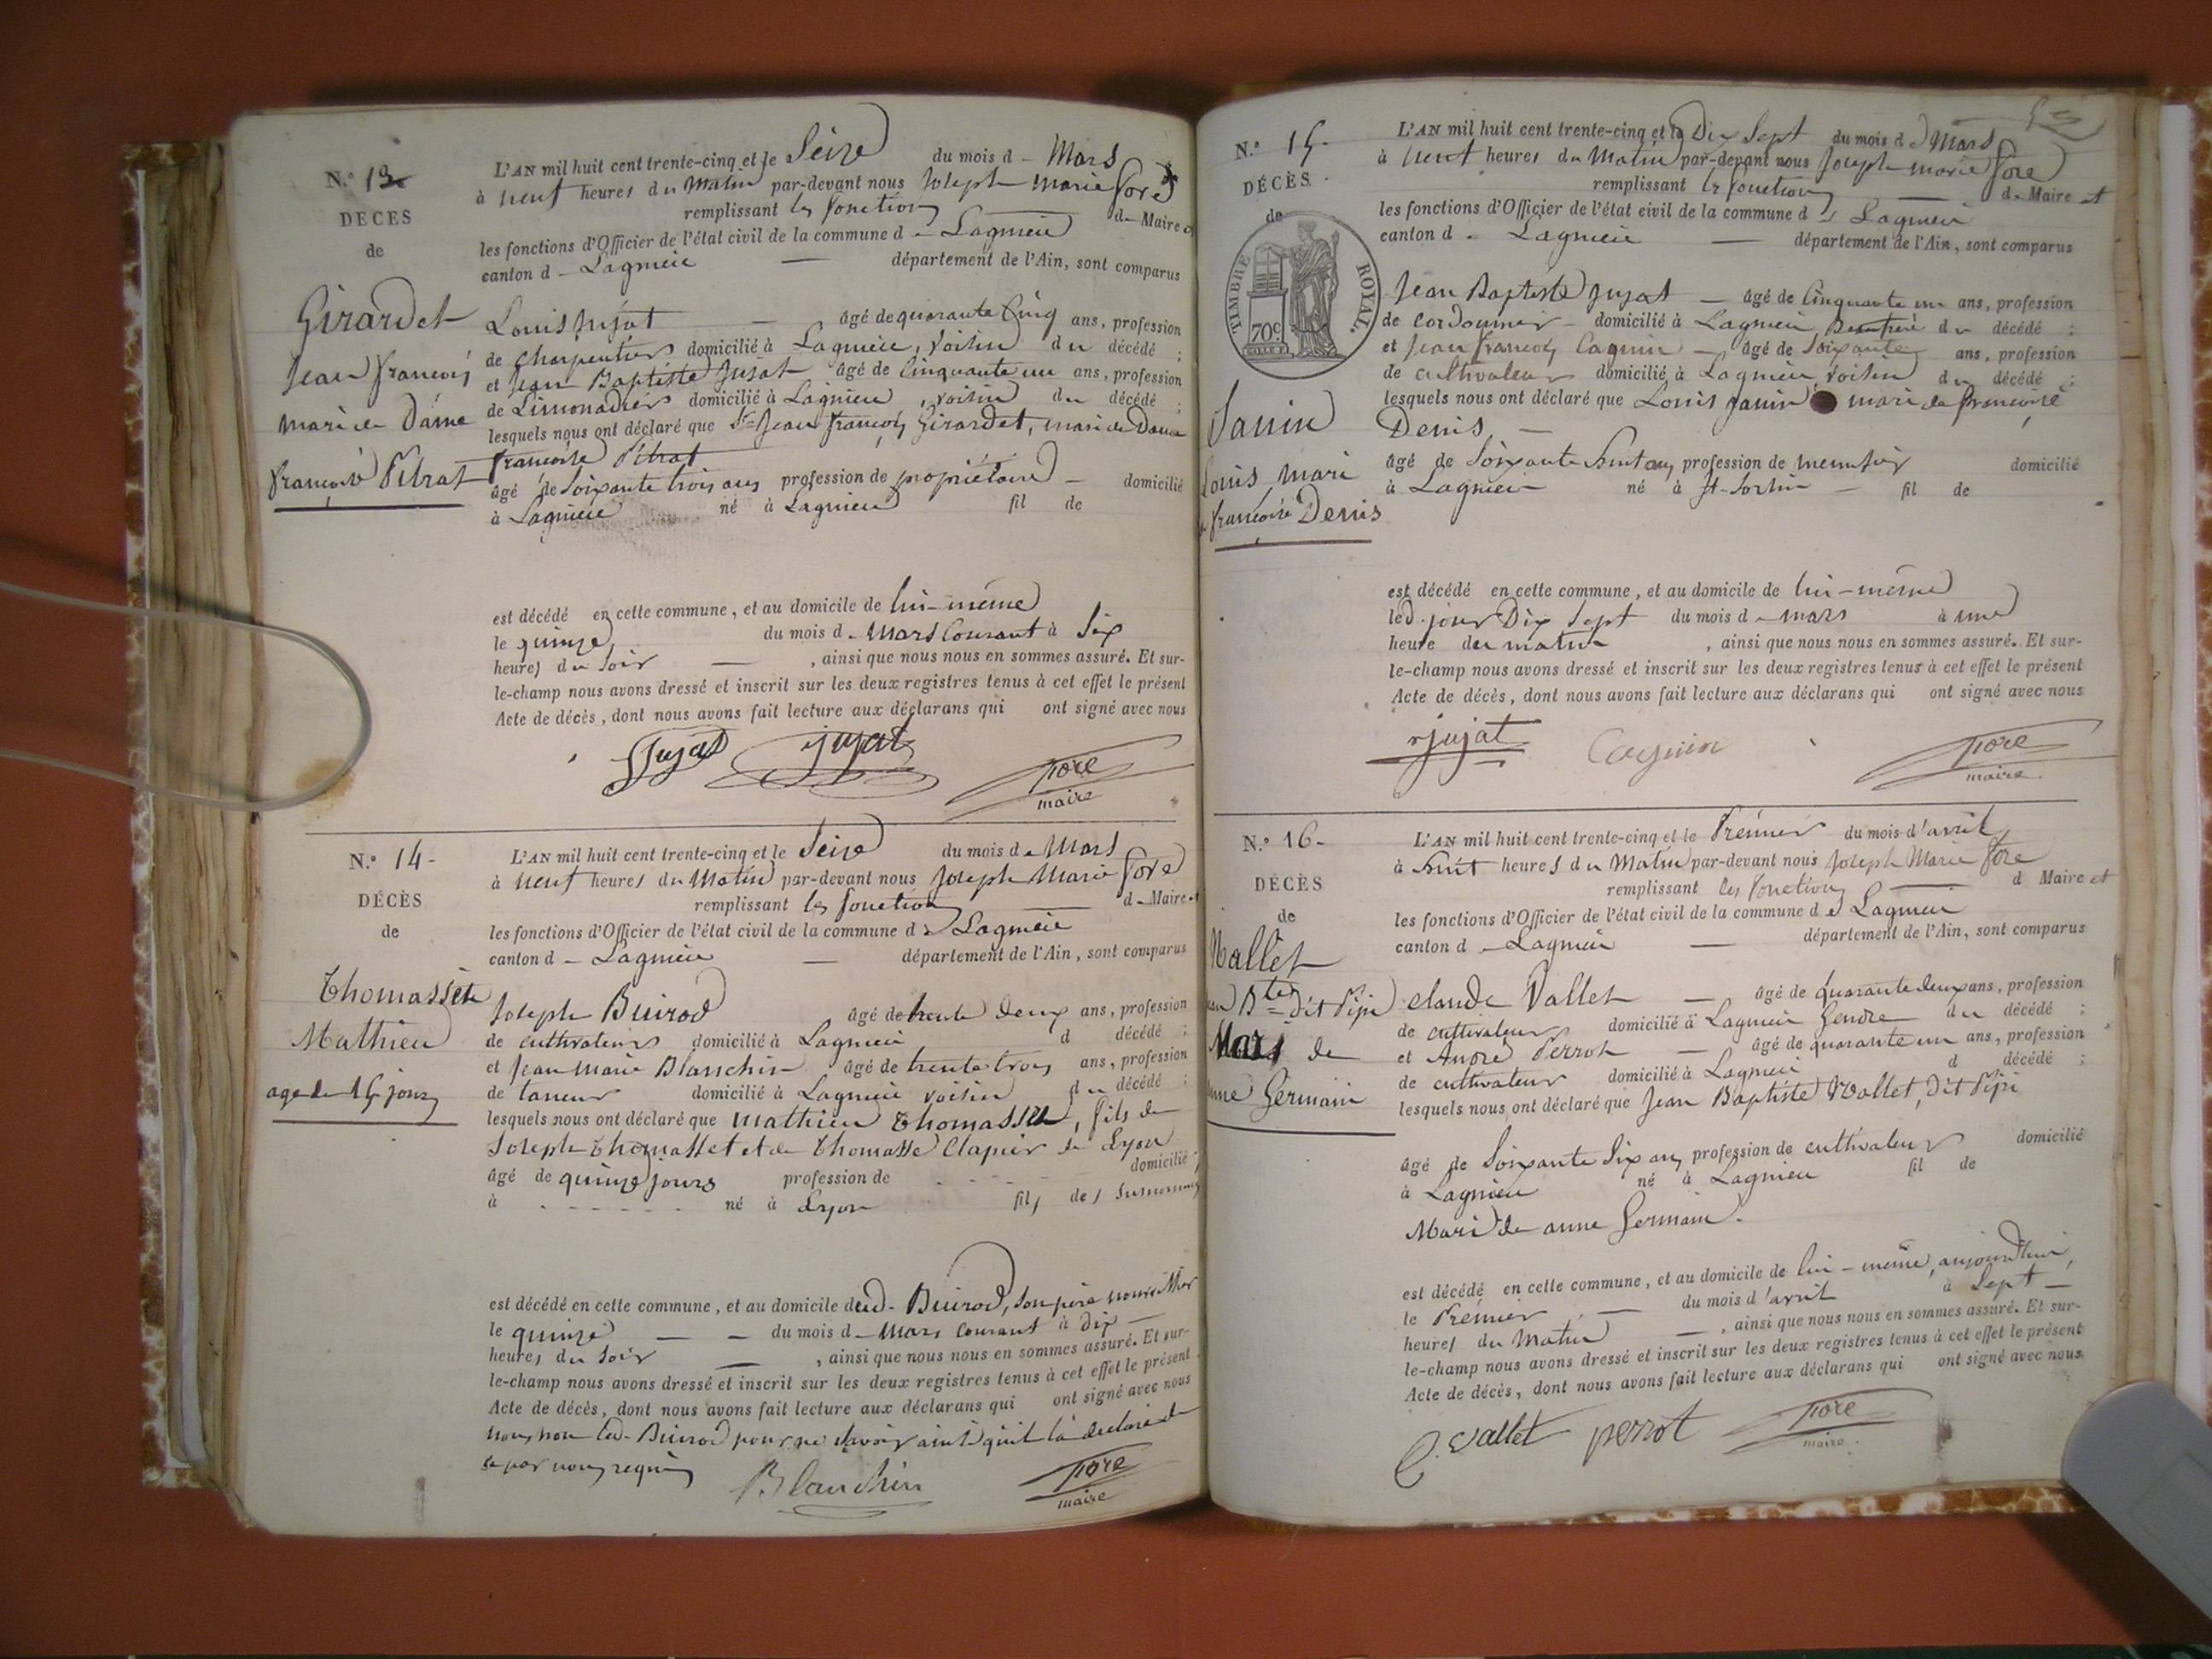 N.° 13
DÉCÈS
de
Girardet
Jean françois
mari de Dame
françoise Pitrat
L'AN mil huit cent trente-cinq et le Seize du mois d - Mars
à neuf heures du Matin par-devant nous Joseph Marie Fore
remplissant les fonctions d - Maire et
les fonctions d'Officier de l'état civil de la commune d - Lagnieu
canton d - Lagnieu — département de l'Ain, sont comparus
Louis Jujat — âgé de quarante Cinq ans, profession
de Charpentier domicilié à Lagnieu, voisin du décédé ;
et Jean Baptiste Jujat âgé de Cinquante un ans, profession
de Limonadier domicilié à Lagnieu, voisin du décédé ;
lesquels nous ont déclaré que Sr Jean françois Girardet, mari de Dame
françoise Pitrat
âgé de Soixante trois ans profession de propriétaire - domicilié
à Lagnieu né à Lagnieu fil de
est décédé en cette commune, et au domicile de lui-même
le quinze du mois d - Mars Courant à Six
heures du Soir — , ainsi que nous nous en sommes assuré. Et sur-
le-champ nous avons dressé et inscrit sur les deux registres tenus à cet effet le présent
Acte de décès, dont nous avons fait lecture aux déclarans qui ont signé avec nous
Jujat Jujat Fore
maire
N.° 14 -
DÉCÈS
de
Thomasset
Mathieu
age de 15 jours
L'AN mil huit cent trente-cinq et le Seize du mois de Mars
à neuf heures du Matin par-devant nous Joseph Marie Fore
remplissant les fonctions d - Maire et
les fonctions d'Officier de l'état civil de la commune de Lagnieu
canton d - Lagnieu — département de l'Ain, sont comparus
Joseph Buirod âgé de trente deux ans, profession
de cultivateur domicilié à Lagnieu d décédé ;
et Jean Marie Blanchin âgé de trente trois ans, profession
de taneur domicilié à Lagnieu voisin du décédé ;
lesquels nous ont déclaré que Mathieu Thomasset, fils de
Joseph Thomasset et de Thomasse Clapier de Lyon
âgé de quinze jours profession de - - - - domicilié
à - - - - - - né à Lyon fils des Susnommés
est décédé en cette commune, et au domicile dud. Buirod, son père nourricier
le quinze — — du mois d - Mars courant à dix —
heures du Soir — , ainsi que nous nous en sommes assuré. Et sur-
le-champ nous avons dressé et inscrit sur les deux registres tenus à cet effet le présent
Acte de décès, dont nous avons fait lecture aux déclarans qui ont signé avec nous
nous, non led. Buirod pour ne savoir ainsi qu'il l'a déclaré de
ce par nous requis
Blanchin Fore
maire
53
N.° 15 -
DÉCÈS
de
TIMBRE ROYAL.
70c
Janin
Louis mari
de françoise Denis
L'AN mil huit cent trente-cinq et le Dix Sept du mois de Mars
à neuf heures du Matin par-devant nous Joseph marie Fore
remplissant les fonctions — d - Maire et
les fonctions d'Officier de l'état civil de la commune de Lagnieu
canton d - Lagnieu — département de l'Ain, sont comparus
Jean Baptiste Jujat — âgé de Cinquante un ans, profession
de Cordonnier - domicilié à Lagnieu, Beaufrère du décédé ;
et Jean françois Cagnin — âgé de Soixante ans, profession
de cultivateur domicilié à Lagnieu, voisin du décédé ;
lesquels nous ont déclaré que Louis Janin mari de françoise
Denis —
âgé de Soixante huit ans profession de menuisier domicilié
à Lagnieu né à St-Sorlin — fil de
est décédé en cette commune, et au domicile de lui-même
led. jour Dix Sept du mois d - mars à une
heure du matin , ainsi que nous nous en sommes assuré. Et sur-
le-champ nous avons dressé et inscrit sur les deux registres tenus à cet effet le présent
Acte de décès, dont nous avons fait lecture aux déclarans qui ont signé avec nous
Jujat Cagnin Fore
maire
N.° 16 -
DÉCÈS
de
Vallet
Jean Bte dit Pipi
Mari de
anne Germain
L'AN mil huit cent trente-cinq et le Premier du mois d'avril
à huit heures du Matin par-devant nous Joseph Marie Fore
remplissant les fonctions — d Maire et
les fonctions d'Officier de l'état civil de la commune de Lagnieu
canton d - Lagnieu — département de l'Ain, sont comparus
Claude Vallet — âgé de quarante deux ans, profession
de cultivateur domicilié à Lagnieu Gendre du décédé ;
et André Perrot — âgé de quarante un ans, profession
de cultivateur domicilié à Lagnieu d décédé ;
lesquels nous ont déclaré que Jean Baptiste Vallet, Dit Pipi
âgé de Soixante Six ans profession de cultivateur domicilié
à Lagnieu né à Lagnieu fil de
Mari de anne Germain.
est décédé en cette commune, et au domicile de lui-même, aujourd'hui,
le Premier — du mois d'avril à Sept —
heures du Matin — , ainsi que nous nous en sommes assuré. Et sur-
le-champ nous avons dressé et inscrit sur les deux registres tenus à cet effet le présent
Acte de décès, dont nous avons fait lecture aux déclarans qui ont signé avec nous.
C. Vallet perrot Fore
maire